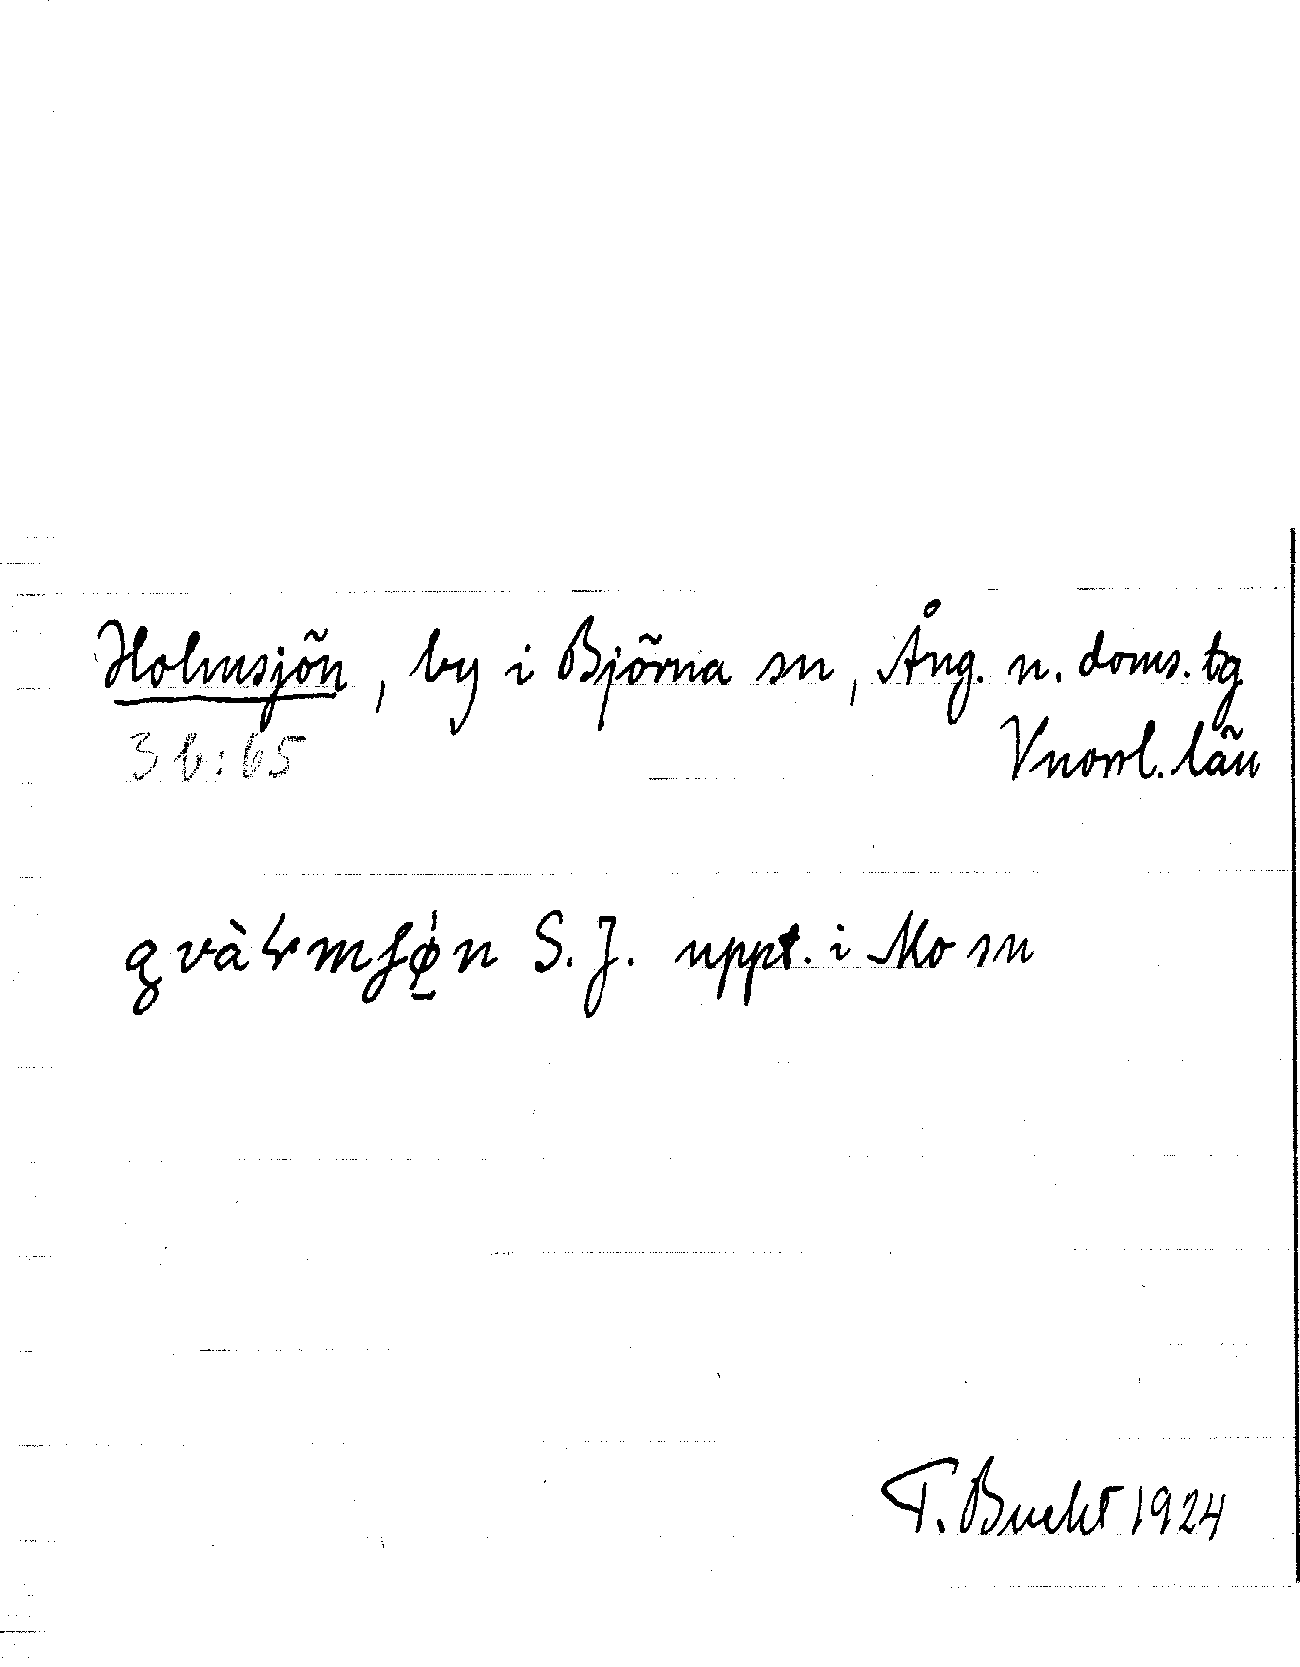 Holmsjön, by i Björna sn, Ång. n. doms. tg
3 b:65
Vnorrl. län
S. J. uppt. i Mo sn
T. Bucht 1924